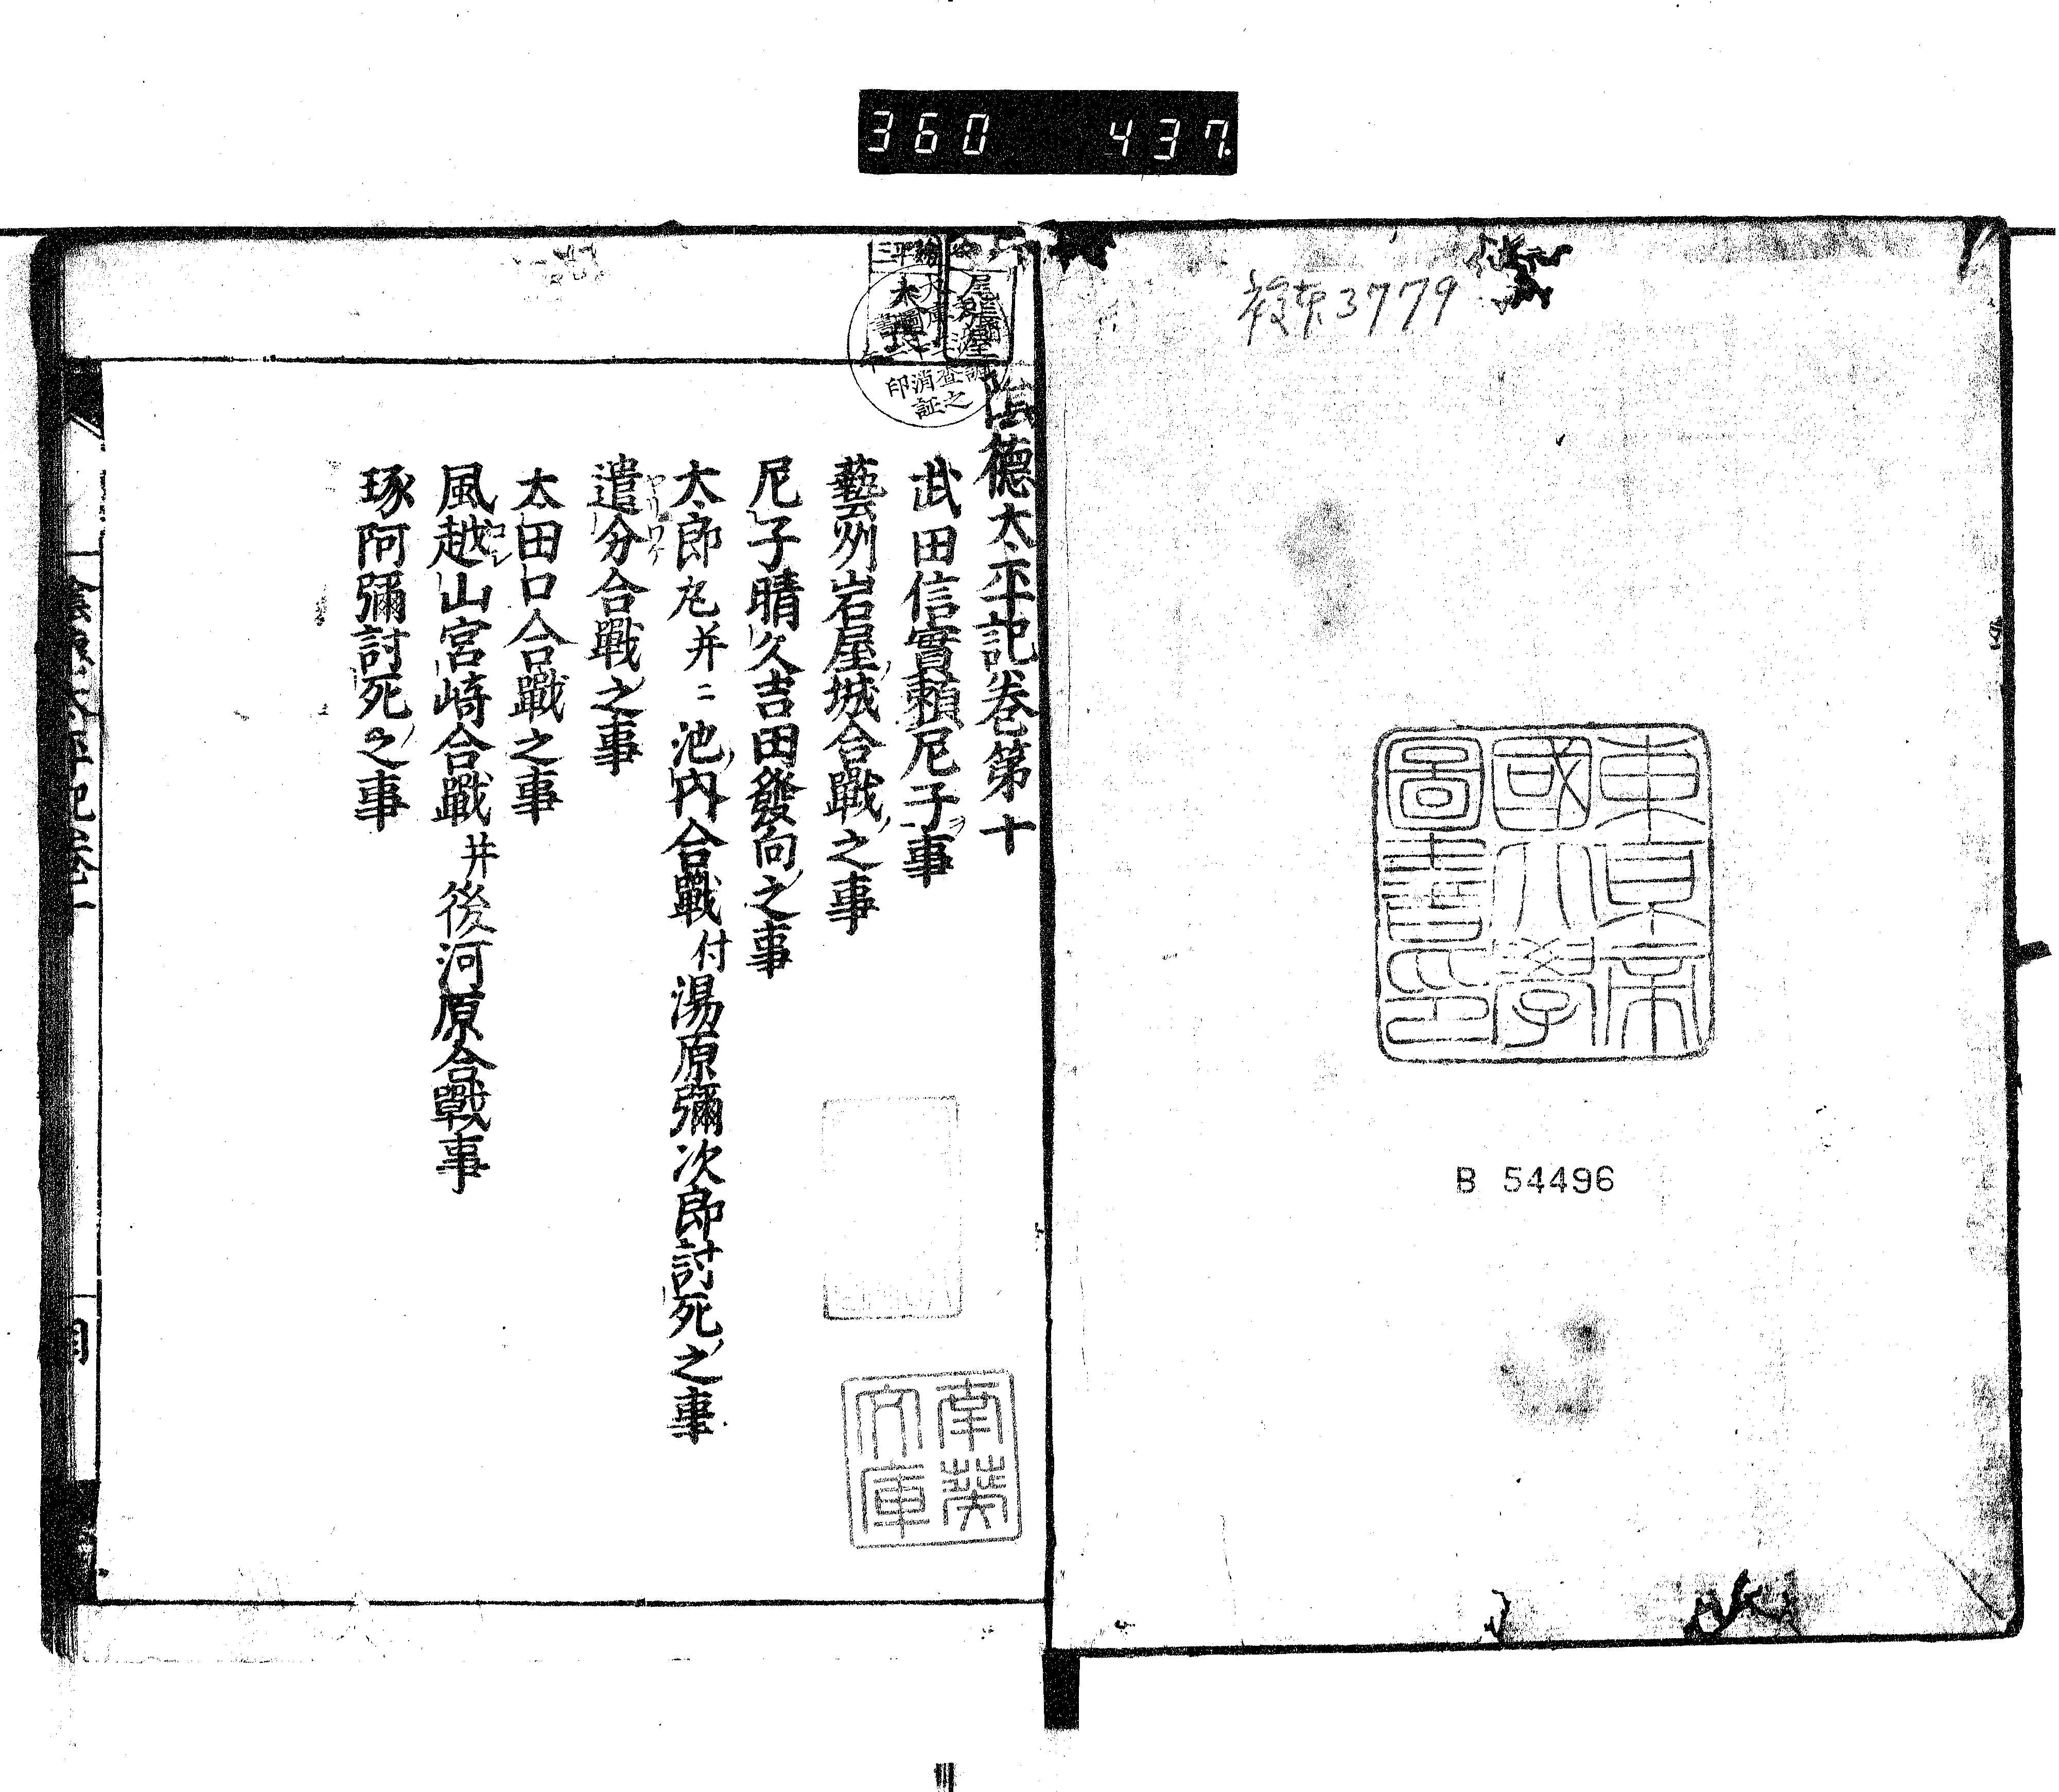 360 437
複東3779
東京帝
國大學
圖書印
B 54496
陰德太平記卷第十
武田信實頼尼子事
藝州岩屋城合戰之事
尼子晴久吉田發向之事
太郎丸并ニ池内合戰付湯原彌次郎討死之事
遣分合戰之事
太田口合戰之事
風越山宮崎合戰并後河原合戰事
琢阿彌討死之事
南葵
文庫
調查
消印
之証